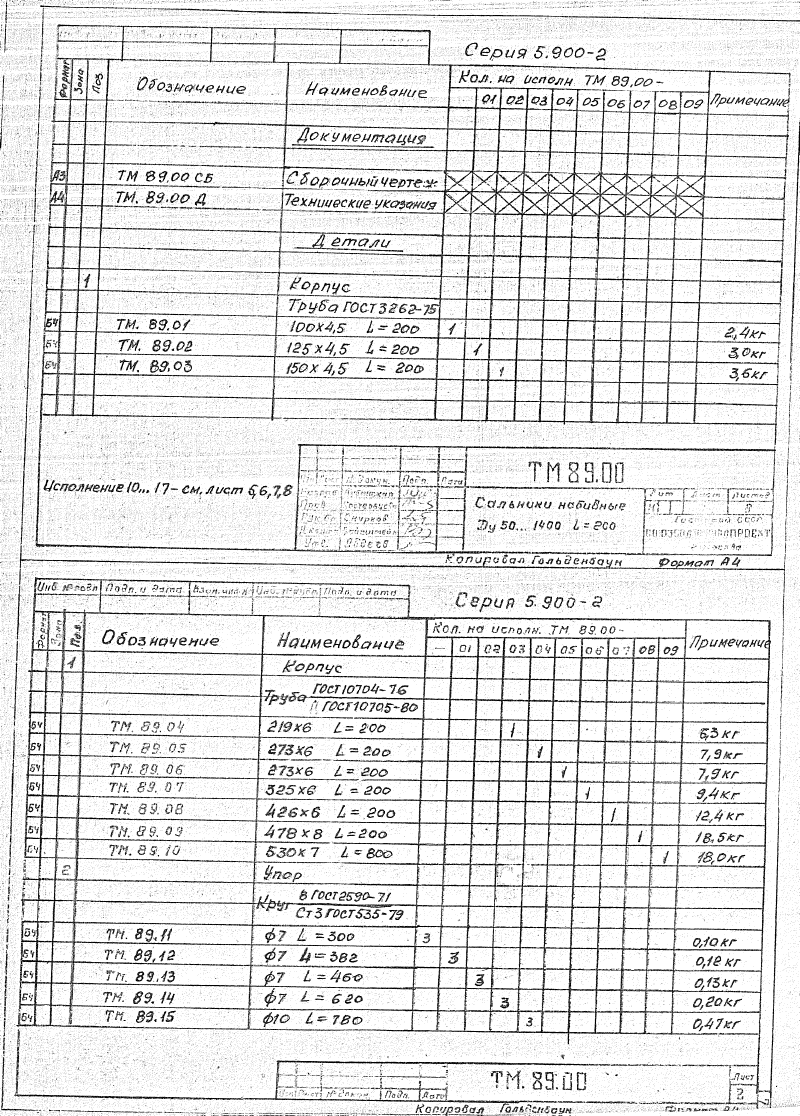 Серия 5.900-2
Формат Зона Поз. Обозначение Наименование Кол. на исполн. ТМ 89.00- Примечание
01 02 03 04 05 06 07 08 09
Документация
А3 ТМ 89.00 СБ Сборочный чертеж
А4 ТМ. 89.00 Д Технические указания
Детали
1 Корпус
Труба ГОСТ 3262-75
БЧ ТМ. 89.01 100х4,5 L=200 1 2,4кг
БЧ ТМ. 89.02 125х4,5 L=200 1 3,0кг
БЧ ТМ. 89.03 150х4,5 L=200 1 3,6кг
Исполнение 10... 17- см. лист 5,6,7,8
ТМ 89.00
Сальники набивные
Ду 50... 1400 L=200
Лит Лист Листов
8
Копировал Гольденбаум Формат А4
Инв. № подл. Подп. и дата Взам. инв. № Инв. № дубл. Подп. и дата
Серия 5.900-2
Формат Зона Поз. Обозначение Наименование Кол. на исполн. ТМ 89.00- Примечание
— 01 02 03 04 05 06 07 08 09
1 Корпус
Труба ГОСТ 10704-76
ГОСТ 10705-80
БЧ ТМ. 89.04 219х6 L=200 1 6,3кг
БЧ ТМ. 89.05 273х6 L=200 1 7,9кг
БЧ ТМ. 89.06 273х6 L=200 1 7,9кг
БЧ ТМ. 89.07 325х6 L=200 1 9,4кг
БЧ ТМ. 89.08 426х6 L=200 1 12,4кг
БЧ ТМ. 89.09 478х8 L=200 1 18.5кг
БЧ ТМ. 89.10 530х7 L=800 1 18,0кг
2 Упор
Круг В ГОСТ 2590-71
Ст3 ГОСТ 535-79
БЧ ТМ. 89.11 ф7 L=300 3 0,10кг
БЧ ТМ. 89.12 ф7 L=382 3 0,12кг
БЧ ТМ. 89.13 ф7 L=460 3 0,13кг
БЧ ТМ. 89.14 ф7 L=620 3 0,20кг
БЧ ТМ. 89.15 ф10 L=780 3 0,47кг
ТМ. 89.00
Лист
2
Подп. Дата
Копировал Гольденбаум Формат А4